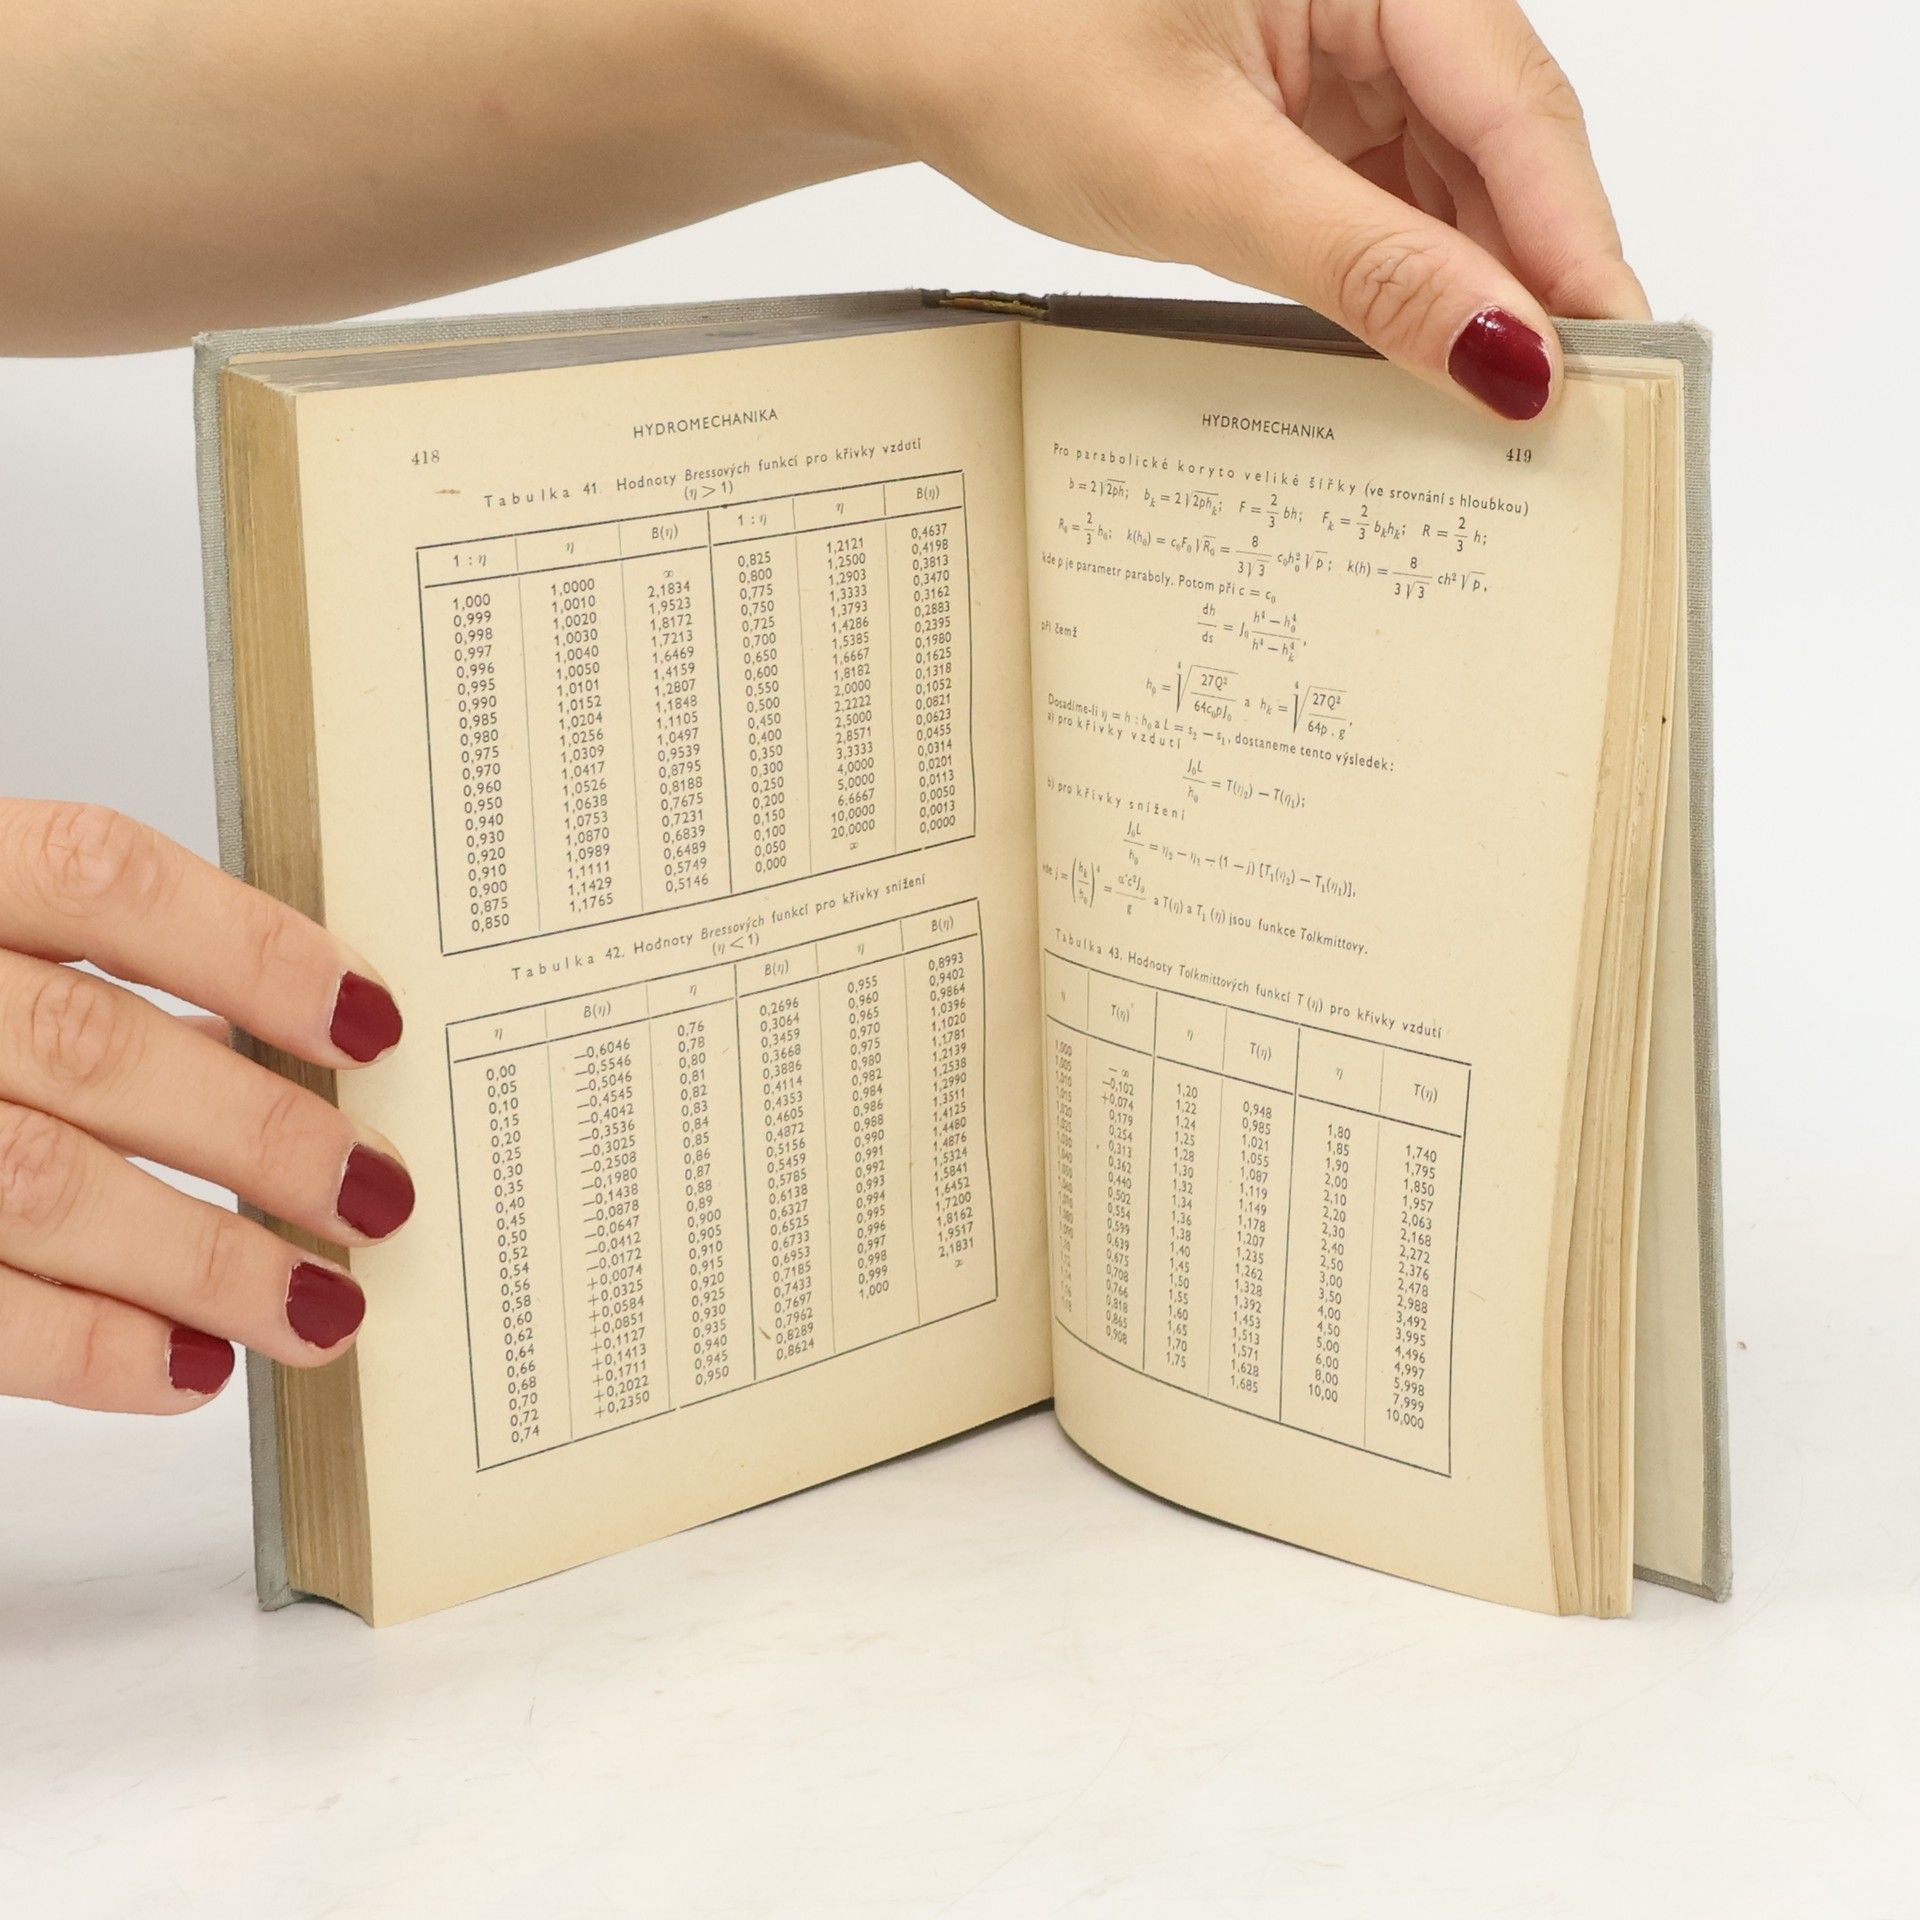 418
HYDROMECHANIKA
Tabulka 41. Hodnoty Bressových funkcí pro křivky vzdutí
(η > 1)
1 : η η B(η) 1 : η η B(η)
1,000 1,0000 ∞ 0,825 1,2121 0,4637
0,999 1,0010 2,1834 0,800 1,2500 0,4198
0,998 1,0020 1,9523 0,775 1,2903 0,3813
0,997 1,0030 1,8172 0,750 1,3333 0,3470
0,996 1,0040 1,7213 0,725 1,3793 0,3162
0,995 1,0050 1,6469 0,700 1,4286 0,2883
0,990 1,0101 1,4159 0,650 1,5385 0,2395
0,985 1,0152 1,2807 0,600 1,6667 0,1980
0,980 1,0204 1,1848 0,550 1,8182 0,1625
0,975 1,0256 1,1105 0,500 2,0000 0,1318
0,970 1,0309 1,0497 0,450 2,2222 0,1052
0,960 1,0417 0,9539 0,400 2,5000 0,0821
0,950 1,0526 0,8795 0,350 2,8571 0,0623
0,940 1,0638 0,8188 0,300 3,3333 0,0455
0,930 1,0753 0,7675 0,250 4,0000 0,0314
0,920 1,0870 0,7231 0,200 5,0000 0,0201
0,910 1,0989 0,6839 0,150 6,6667 0,0113
0,900 1,1111 0,6489 0,100 10,0000 0,0050
0,875 1,1429 0,5749 0,050 20,0000 0,0013
0,850 1,1765 0,5146 0,000 ∞ 0,0000
Tabulka 42. Hodnoty Bressových funkcí pro křivky snížení
(η < 1)
η B(η) η B(η) η B(η)
0,00 —0,6046 0,76 0,2696 0,955 0,8993
0,05 —0,5546 0,78 0,3064 0,960 0,9402
0,10 —0,5046 0,80 0,3459 0,965 0,9864
0,15 —0,4545 0,81 0,3668 0,970 1,0396
0,20 —0,4042 0,82 0,3886 0,975 1,1020
0,25 —0,3536 0,83 0,4114 0,980 1,1781
0,30 —0,3025 0,84 0,4353 0,982 1,2139
0,35 —0,2508 0,85 0,4605 0,984 1,2538
0,40 —0,1980 0,86 0,4872 0,986 1,2990
0,45 —0,1438 0,87 0,5156 0,988 1,3511
0,50 —0,0878 0,88 0,5459 0,990 1,4125
0,52 —0,0647 0,89 0,5785 0,991 1,4480
0,54 —0,0412 0,900 0,6138 0,992 1,4876
0,56 —0,0172 0,905 0,6327 0,993 1,5324
0,58 +0,0074 0,910 0,6525 0,994 1,5841
0,60 +0,0325 0,915 0,6733 0,995 1,6452
0,62 +0,0584 0,920 0,6953 0,996 1,7200
0,64 +0,0851 0,925 0,7185 0,997 1,8162
0,66 +0,1127 0,930 0,7433 0,998 1,9517
0,68 +0,1413 0,935 0,7697 0,999 2,1831
0,70 +0,1711 0,940 0,7962 1,000 ∞
0,72 +0,2022 0,945 0,8289
0,74 +0,2350 0,950 0,8624
HYDROMECHANIKA
419
Pro parabolické koryto veliké šířky (ve srovnání s hloubkou)
b = 2√2ph; bₖ = 2√2phₖ; F = 2/3 bh; Fₖ = 2/3 bₖhₖ; R = 2/3 h;
R₀ = 2/3 h₀; k(h₀) = c₀F₀√R₀ = 8/(3√3) c₀h₀²√p; k(h) = 8/(3√3) ch²√p,
kde p je parametr paraboly. Potom při c = c₀
dh/ds = J₀ (h⁴ — h₀⁴)/(h⁴ — hₖ⁴),
při čemž
h₀ = ⁴√(27Q²/64c₀pJ₀) a hₖ = ⁴√(27Q²/64p . g).
Dosadíme-li η = h : h₀ a L = s₂ — s₁, dostaneme tento výsledek:
a) pro křivky vzdutí
J₀L/h₀ = T(η₂) — T(η₁);
b) pro křivky snížení
J₀L/h₀ = η₂ — η₁ — (1 — j) [T₁(η₂) — T₁(η₁)],
kde j = (hₖ/h₀)⁴ = α'c²J₀/g a T(η) a T₁ (η) jsou funkce Tolkmittovy.
Tabulka 43. Hodnoty Tolkmittových funkcí T (η) pro křivky vzdutí
η T(η) η T(η) η T(η)
1,000 — ∞ 1,20 0,948 1,80 1,740
1,005 —0,102 1,22 0,985 1,85 1,795
1,010 +0,074 1,24 1,021 1,90 1,850
1,015 0,179 1,25 1,055 2,00 1,957
1,020 0,254 1,28 1,087 2,10 2,063
1,025 0,313 1,30 1,119 2,20 2,168
1,030 0,362 1,32 1,149 2,30 2,272
1,040 0,440 1,34 1,178 2,40 2,376
1,050 0,502 1,36 1,207 2,50 2,478
1,060 0,554 1,38 1,235 3,00 2,988
1,070 0,599 1,40 1,262 3,50 3,492
1,080 0,639 1,45 1,328 4,00 3,995
1,090 0,675 1,50 1,392 4,50 4,496
1,10 0,708 1,55 1,453 5,00 4,997
1,12 0,766 1,60 1,513 6,00 5,998
1,14 0,818 1,65 1,571 8,00 7,999
1,16 0,865 1,70 1,628 10,00 10,000
1,18 0,908 1,75 1,685